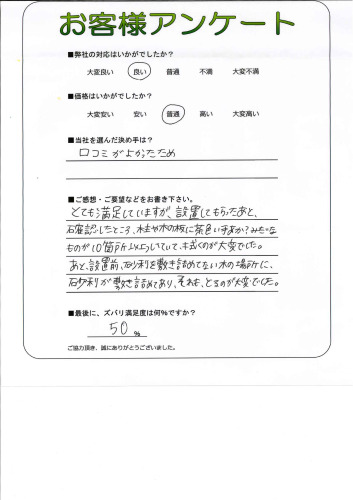 お客様アンケート
■弊社の対応はいかがでしたか？
大変良い 良い 普通 不満 大変不満
■価格はいかがでしたか？
大変安い 安い 普通 高い 大変高い
■当社を選んだ決め手は？
口コミがよかったため
■ご感想・ご要望などをお書き下さい。
とても満足していますが、設置してもらったあと、
確認したところ、柱や木の板に茶色い手あか？みたいな
ものが10箇所以上ついていて、拭くのが大変でした。
あと、設置前、砂利を敷き詰めてない木の場所に、
砂利が敷き詰めてあり、それを、とるのが大変でした。
■最後に、ズバリ満足度は何％ですか？
50 ％
ご協力頂き、誠にありがとうございました。